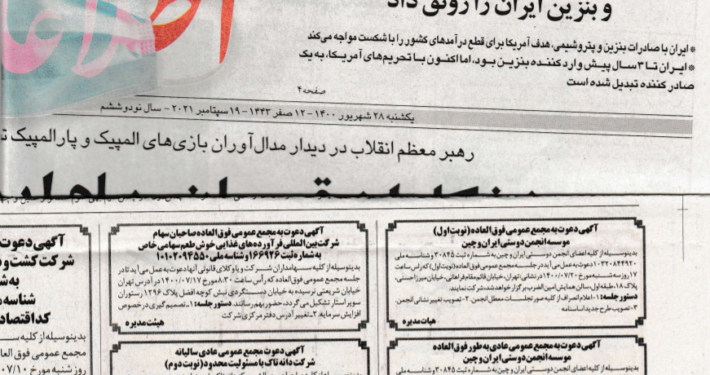 و بنزین ایران را رونق داد
* ایران با صادرات بنزین و پتروشیمی، هدف آمریکا برای قطع درآمدهای کشور را با شکست مواجه می‌کند
* ایران تا ۳ سال پیش وارد کننده بنزین بود، اما اکنون با تحریم‌های آمریکا، به یک
صادر کننده تبدیل شده است
صفحه ۴
یکشنبه ۲۸ شهریور ۱۴۰۰ - ۱۲ صفر ۱۴۴۳ - ۱۹ سپتامبر ۲۰۲۱ - سال نود و ششم
رهبر معظم انقلاب در دیدار مدال‌آوران بازی‌های المپیک و پارالمپیک
آگهی دعوت به مجمع عمومی فوق العاده (نوبت اول)
موسسه انجمن دوستی ایران و چین
بدینوسیله از کلیه اعضای انجمن دوستی ایران و چین به شماره ثبت ۳۰۸۴۵ و شناسه ملی
۱۰۳۲۰۸۴۴۹۲۰ دعوت به عمل می آید در جلسه مجمع عمومی فوق العاده (نوبت اول) که راس ساعت
۱۷ روز سه شنبه مورخ ۱۴۰۰/۰۷/۲۰ به نشانی: تهران، خیابان قائم مقام فراهانی، خیابان میرزا حسنی،
پلاک ۱۸، طبقه اول، سالن همایش امین الضرب برگزار خواهد شد، شرکت نمایند
دستور جلسه: ۱- اعلام انصراف از کلیه صورتجلسات معطل انجمن ۲- تصویب تغییر نشانی انجمن
۳- تصویب طرح جدید اساسنامه
هیات مدیره
آگهی دعوت به مجمع عمومی فوق العاده صاحبان سهام
شرکت بین المللی فرآورده های غذایی خوش طعم سهامی خاص
به شماره ثبت ۱۶۶۹۲۶ و شناسه ملی ۱۰۱۰۲۰۹۴۵۵۰
بدینوسیله از کلیه سهامداران شرکت و یا وکلای قانونی آنها دعوت به عمل می آید تا در
جلسه مجمع عمومی فوق العاده که رأس ساعت ۸:۳۰ مورخ ۱۴۰۰/۰۷/۱۷ در آدرس تهران
خیابان شریعتی نرسیده به خیابان دستگردی نبش کوچه افضل پلاک ۱۲۹۶ رستوران
سوپر استار تشکیل می گردد، حضور بهم رسانند. دستور جلسه: ۱- تصمیم گیری در خصوص
افزایش سرمایه. ۲- تغییر آدرس دفتر مرکزی شرکت
هیئت مدیره
آگهی دعوت
شرکت کشت و
به ش
شناسه
کد اقتصاد
بدینوسیله از کلیه س
مجمع عمومی فوق العا
روز شنبه مورخ ۰۷/۱۰
آگهی دعوت به مجمع عمومی عادی به طور فوق العاده
موسسه انجمن دوستی ایران و چین
بدینوسیله از کلیه اعضای انجمن دوستی ایران و چین به شماره ثبت ۳۰۸۴۵ و شناسه ملی
آگهی دعوت به مجمع عمومی عادی سالیانه
شرکت دانه تاک با مسئولیت محدود (نوبت دوم)